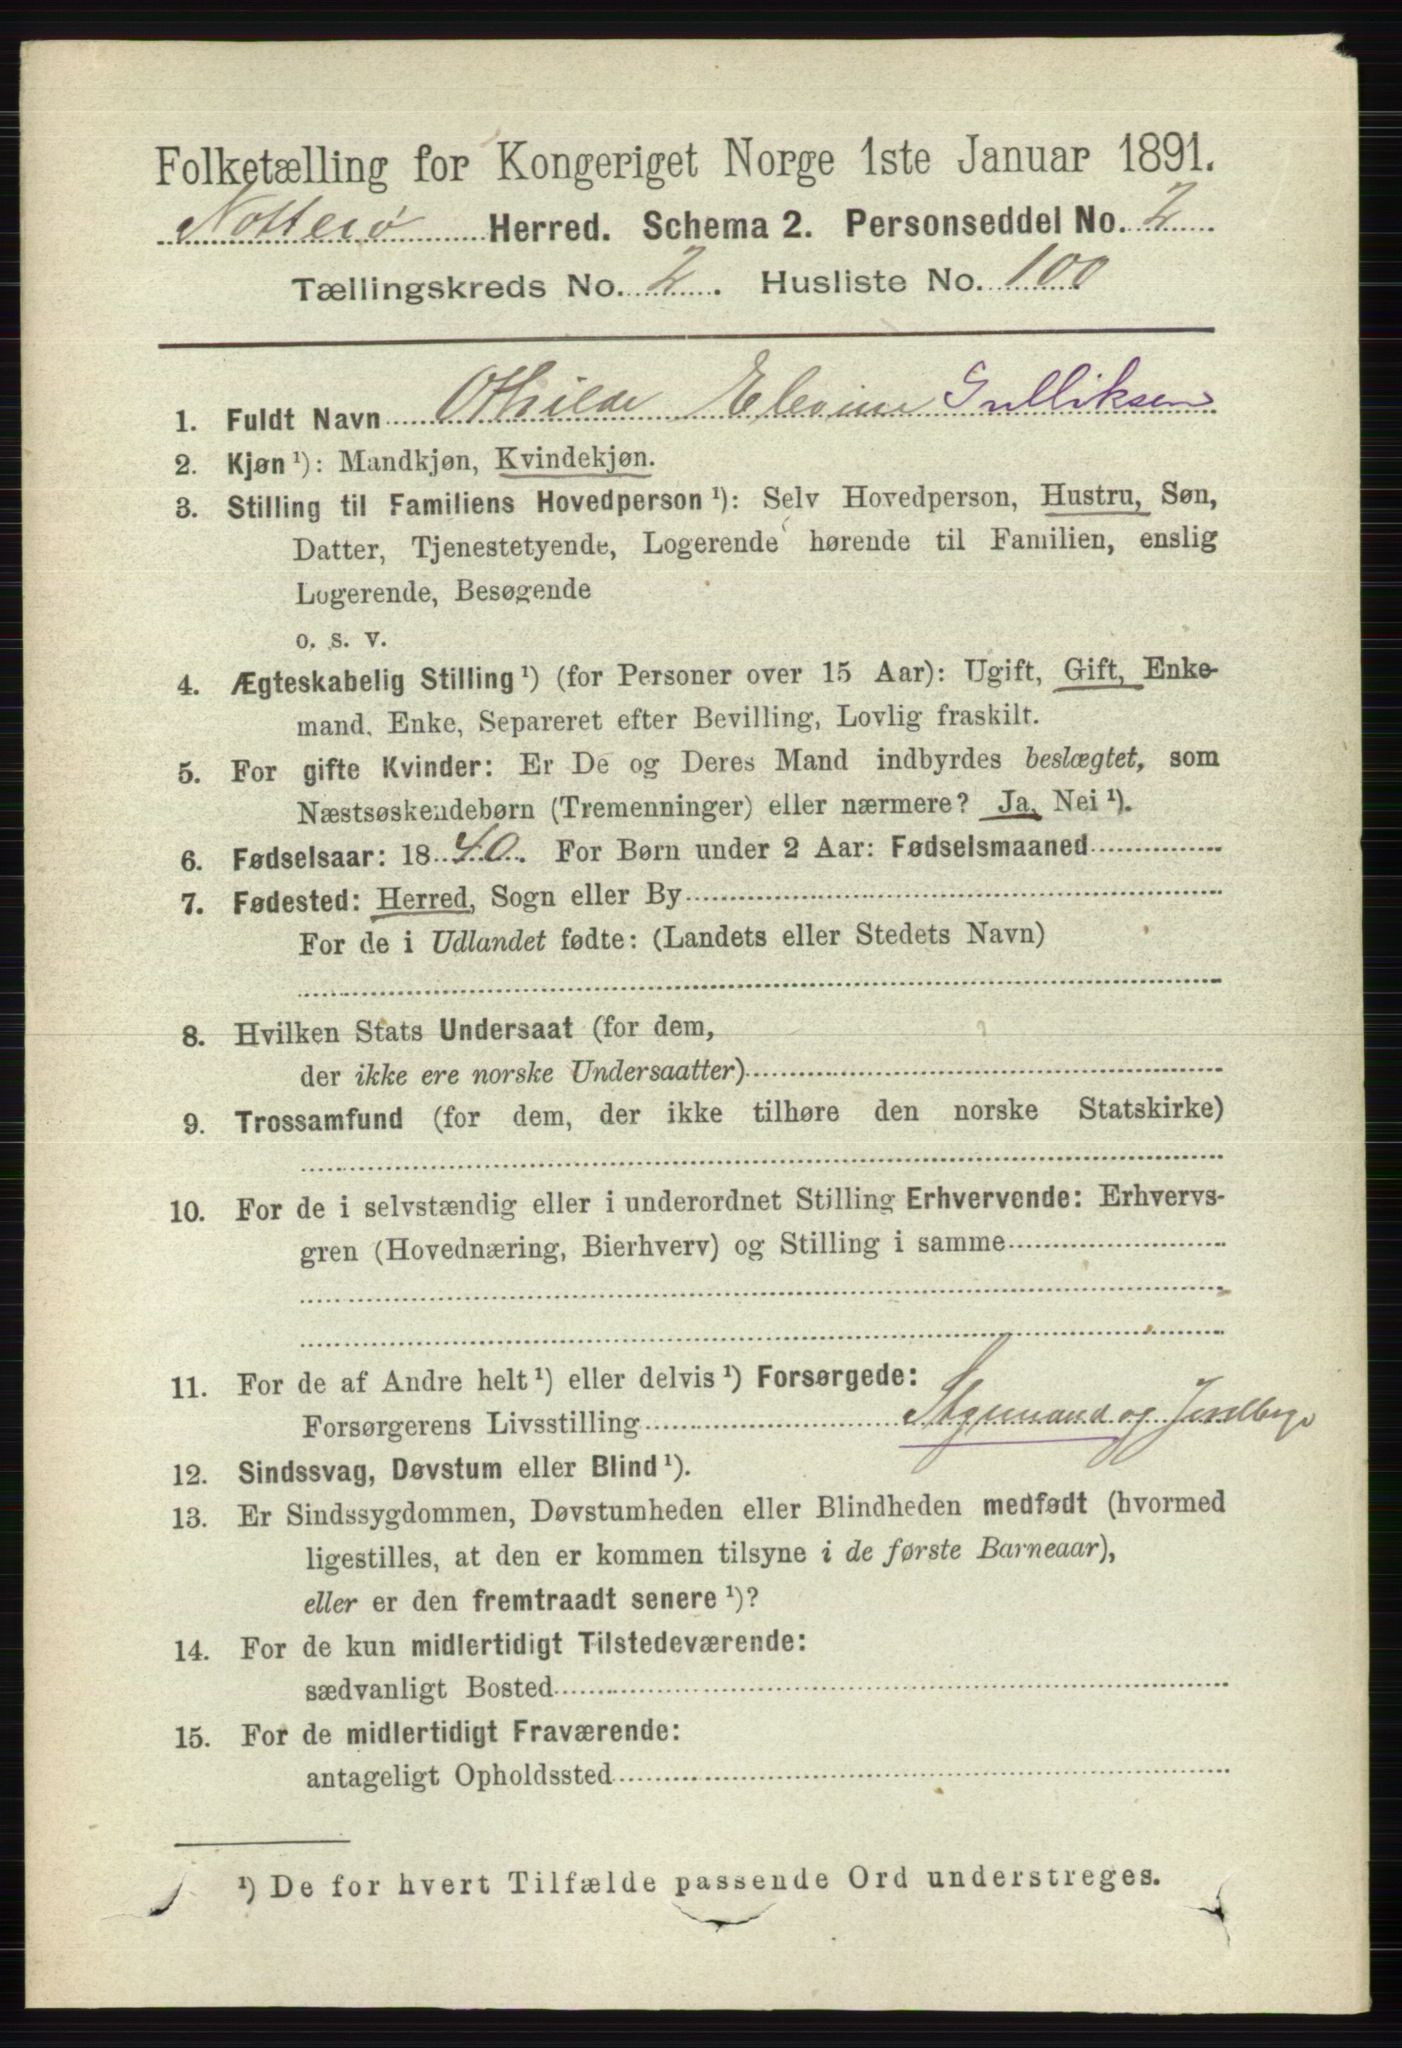 Folketælling for Kongeriget Norge 1ste Januar 1891.
Nøtterø Herred. Schema 2. Personseddel No. 2
Tællingskreds No. 2. Husliste No. 100
1. Fuldt Navn Othilde Elevine Gulliksen
2. Kjøn ¹): Mandkjøn, Kvindekjøn.
3. Stilling til Familiens Hovedperson ¹): Selv Hovedperson, Hustru, Søn,
Datter, Tjenestetyende, Logerende hørende til Familien, enslig
Logerende, Besøgende
o. s. v.
4. Ægteskabelig Stilling ¹) (for Personer over 15 Aar): Ugift, Gift, Enke-
mand, Enke, Separeret efter Bevilling, Lovlig fraskilt.
5. For gifte Kvinder: Er De og Deres Mand indbyrdes beslægtet, som
Næstsøskendebørn (Tremenninger) eller nærmere? Ja, Nei ¹).
6. Fødselsaar: 1840. For Børn under 2 Aar: Fødselsmaaned
7. Fødested: Herred, Sogn eller By
For de i Udlandet fødte: (Landets eller Stedets Navn)
8. Hvilken Stats Undersaat (for dem,
der ikke ere norske Undersaatter)
9. Trossamfund (for dem, der ikke tilhøre den norske Statskirke)
10. For de i selvstændig eller i underordnet Stilling Erhvervende: Erhvervs-
gren (Hovednæring, Bierhverv) og Stilling i samme
11. For de af Andre helt ¹) eller delvis ¹) Forsørgede:
Forsørgerens Livsstilling Styrmand og
12. Sindssvag, Døvstum eller Blind ¹).
13. Er Sindssygdommen, Døvstumheden eller Blindheden medfødt (hvormed
ligestilles, at den er kommen tilsyne i de første Barneaar),
eller er den fremtraadt senere ¹)?
14. For de kun midlertidigt Tilstedeværende:
sædvanligt Bosted
15. For de midlertidigt Fraværende:
antageligt Opholdssted
¹) De for hvert Tilfælde passende Ord understreges.